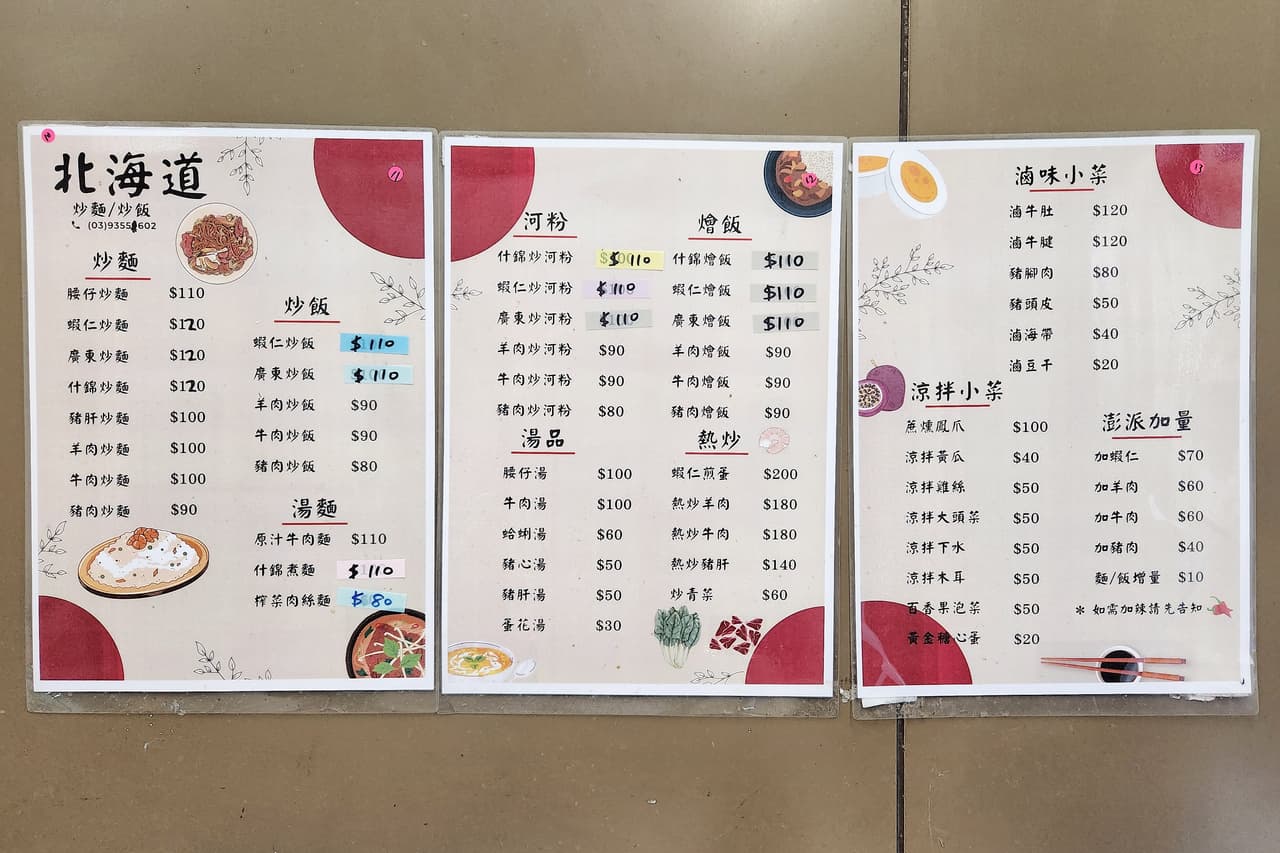 北海道
炒麵/炒飯
(03)9355602
炒麵
腰仔炒麵 $110
蝦仁炒麵 $120
廣東炒麵 $120
什錦炒麵 $120
豬肝炒麵 $100
羊肉炒麵 $100
牛肉炒麵 $100
豬肉炒麵 $90
11
炒飯
蝦仁炒飯 $110
廣東炒飯 $110
羊肉炒飯 $90
牛肉炒飯 $90
豬肉炒飯 $80
湯麵
原汁牛肉麵 $110
什錦煮麵 $110
榨菜肉絲麵 $80
河粉
什錦炒河粉 $110
蝦仁炒河粉 $110
廣東炒河粉 $110
羊肉炒河粉 $90
牛肉炒河粉 $90
豬肉炒河粉 $80
湯品
腰仔湯 $100
牛肉湯 $100
蛤蜊湯 $60
豬心湯 $50
豬肝湯 $50
蛋花湯 $30
12
燴飯
什錦燴飯 $110
蝦仁燴飯 $110
廣東燴飯 $110
羊肉燴飯 $90
牛肉燴飯 $90
豬肉燴飯 $90
熱炒
蝦仁煎蛋 $200
熱炒羊肉 $180
熱炒牛肉 $180
熱炒豬肝 $140
炒青菜 $60
13
滷味小菜
滷牛肚 $120
滷牛腱 $120
豬腳肉 $80
豬頭皮 $50
滷海帶 $40
滷豆干 $20
涼拌小菜
蔗燻鳳爪 $100
涼拌黃瓜 $40
涼拌雞絲 $50
涼拌大頭菜 $50
涼拌下水 $50
涼拌木耳 $50
百香果泡菜 $50
黃金糖心蛋 $20
澎派加量
加蝦仁 $70
加羊肉 $60
加牛肉 $60
加豬肉 $40
麵/飯增量 $10
* 如需加辣請先告知